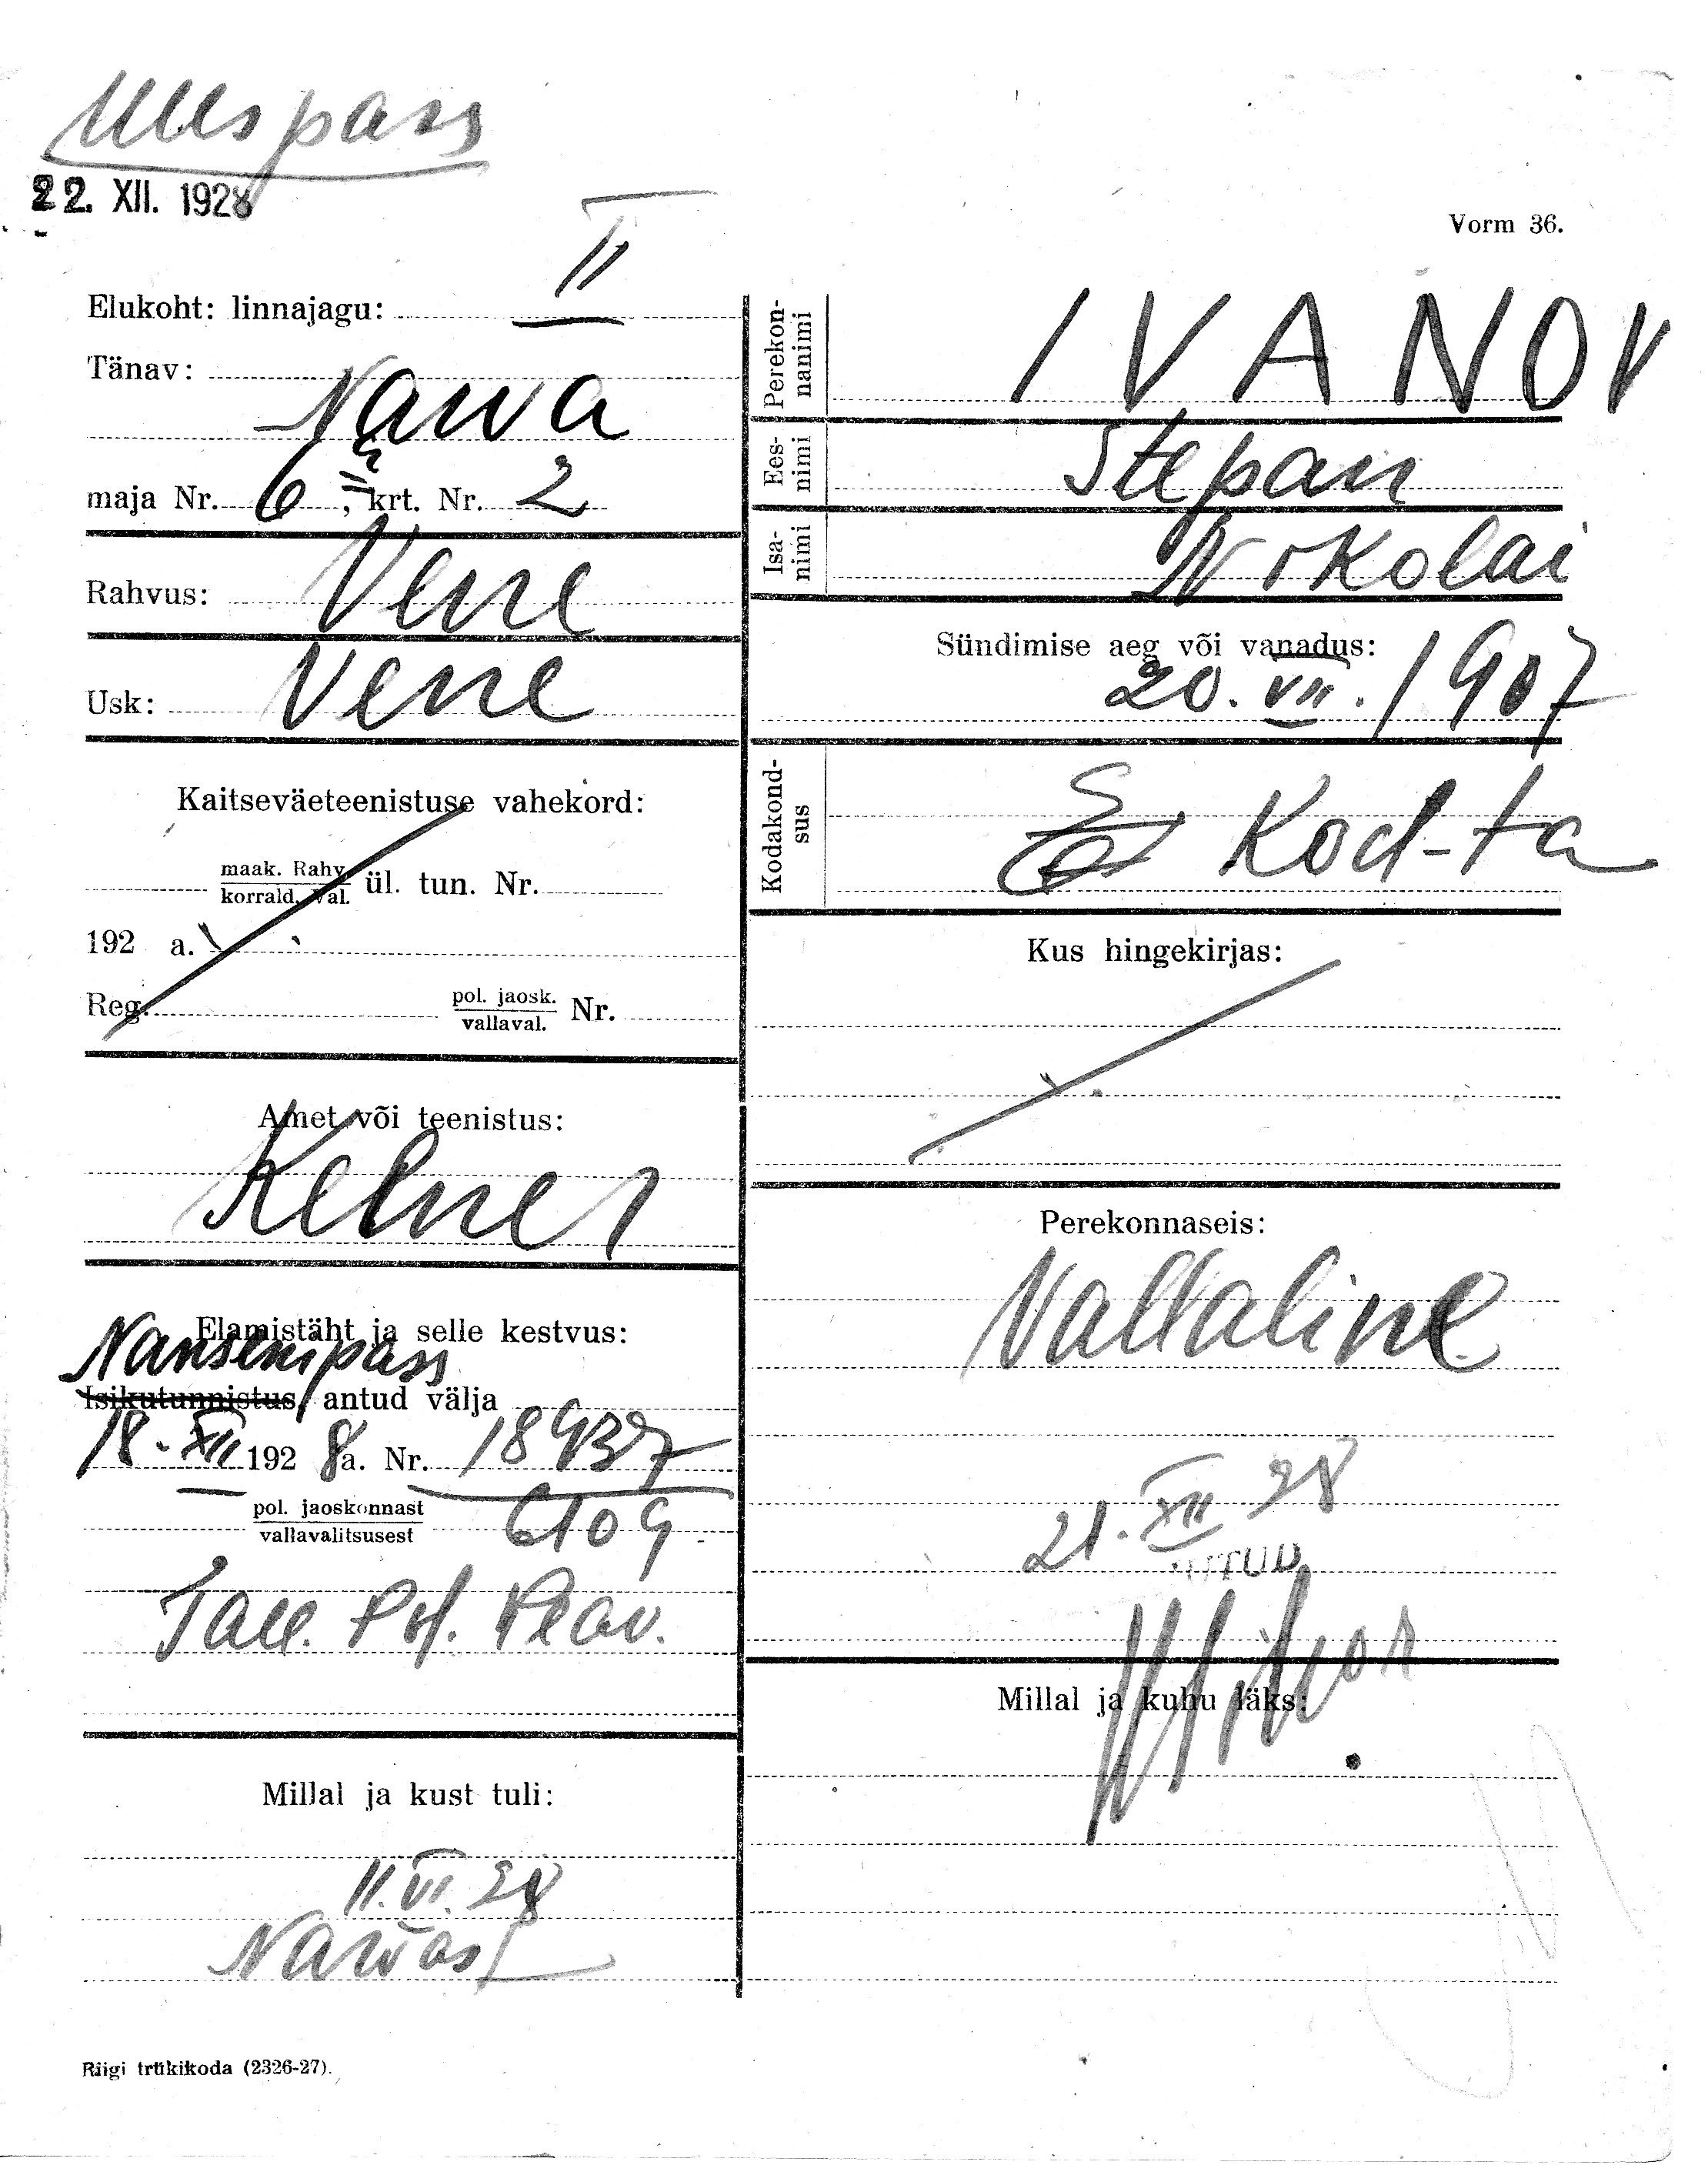 Uus pass
22. XII. 1928
Vorm 36.
Elukoht: linnajagu: II
Tänav:
Narva
maja Nr. 6, krt. Nr. 2
Rahvus: Vene
Usk: Vene
Kaitseväeteenistuse vahekord:
maak. Rahv.
korrald. Val. ül. tun. Nr.
192 a.
Reg. pol. jaosk.
vallaval. Nr.
Amet või teenistus:
Kelner
Elamistäht ja selle kestvus:
Nansenipass
Isikutunnistus, antud välja
18. XII 1928 a. Nr. 18937
pol. jaoskonnast 6109
vallavalitsusest
Tall. Pol.
Millal ja kust tuli:
11. VI. 28
Narvast
Perekon-
nanimi IVANOV
Ees-
nimi Stepan
Isa-
nimi Nikolai
Sündimise aeg või vanadus:
20. VII. 1907
Kodakond-
sus Kod-ta
Kus hingekirjas:
Perekonnaseis:
Vallaline
21. XII 28
Millal ja kuhu läks:
Riigi trükikoda (2326-27).